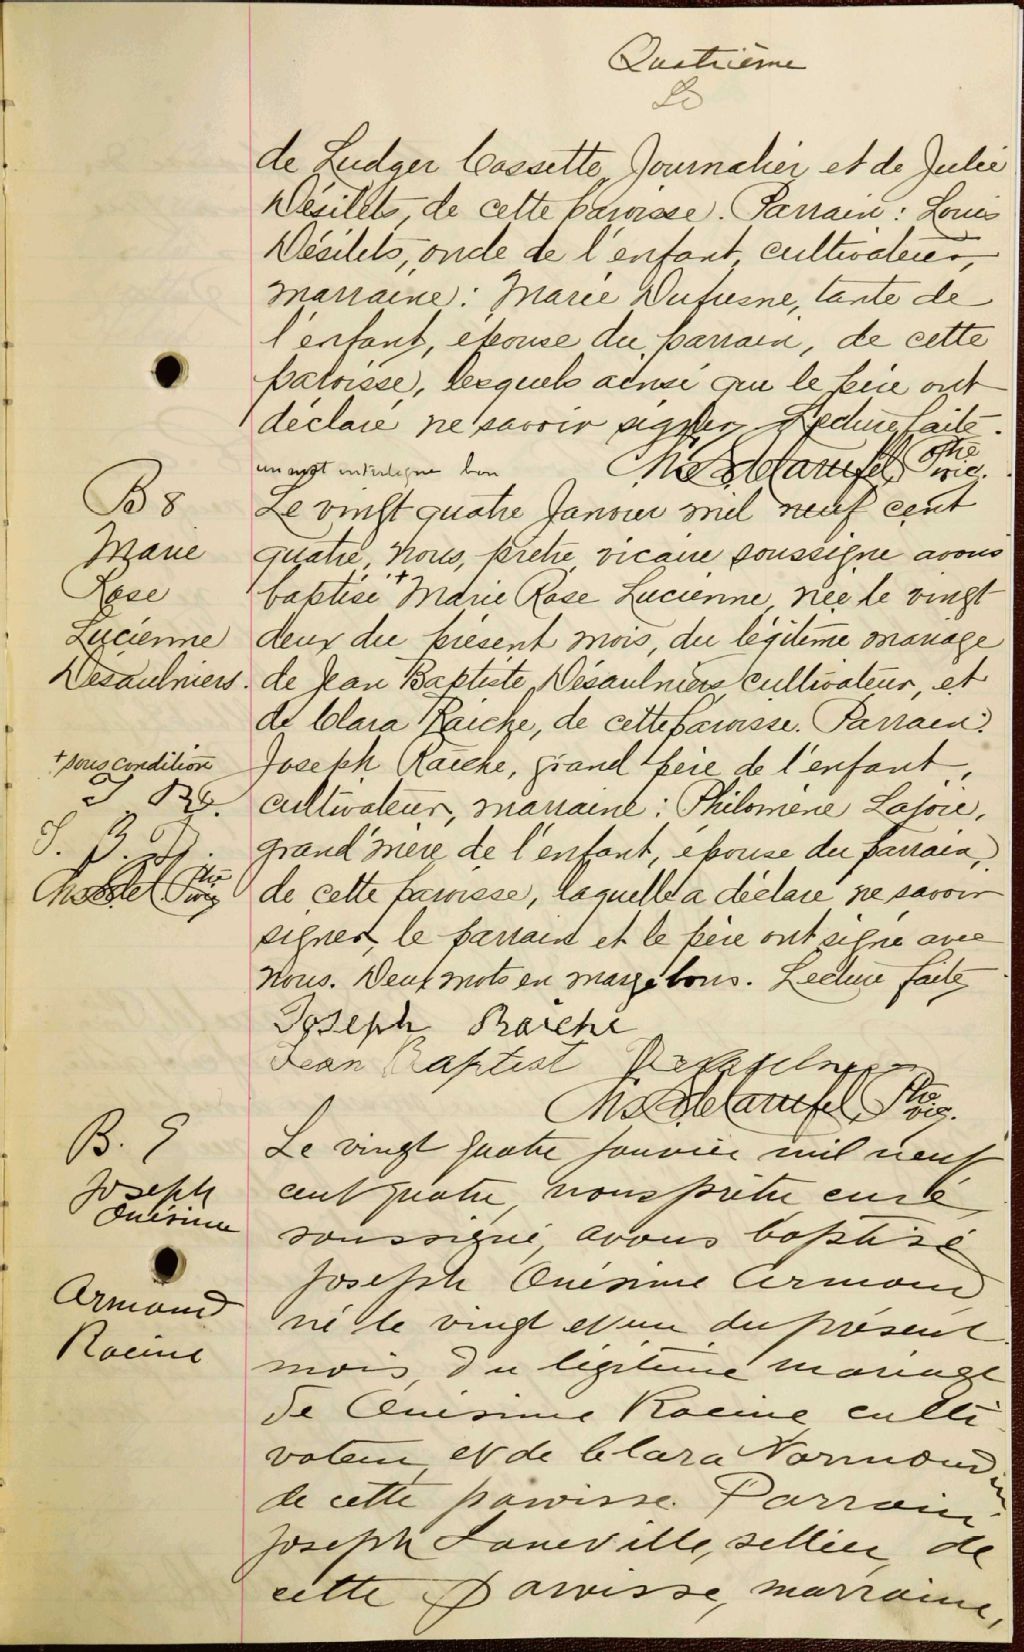 Quatrième
de Ludger Cossette, Journalier et de Julie
Désilets, de cette paroisse. Parrain: Louis
Désilets, oncle de l'enfant, cultivateur,
marraine: Marie Dufresne, tante de
l'enfant, épouse du parrain, de cette
paroisse, lesquels ainsi que le père ont
déclaré ne savoir signer. Lecture faite.
un mot interligne bon
Ptre vic.
B 8
Marie
Rose
Lucienne
Désaulniers.
+ sous condition
J. R.
J. B. D.
Ptre vic
Le vingt quatre Janvier mil neuf cent
quatre, nous, prêtre vicaire soussigné avons
baptisé + Marie Rose Lucienne, née le vingt
deux du présent mois, du légitime mariage
de Jean Baptiste Désaulniers, cultivateur, et
de Clara Raiche, de cette paroisse. Parrain:
Joseph Raiche, grand père de l'enfant,
cultivateur, marraine: Philomène Lajoie,
grand'mère de l'enfant, épouse du parrain,
de cette paroisse, laquelle a déclaré ne savoir
signer, le parrain et le père ont signé avec
nous. Deux mots en marge bons. Lecture faite
Joseph Raiche
Jean Baptist
Ptre vic.
B. 9
Joseph
Onésime
Armand
Racine
Le vingt quatre janvier mil neuf
cent quatre, nous prêtre curé
soussigné, avons baptisé
Joseph Onésime Armand
né le vingt et un du présent
mois, du légitime mariage
de Onésime Racine, culti-
vateur, et de Clara Normandin
de cette paroisse. Parrain
Joseph Laneville, sellier, de
cette paroisse, marraine,